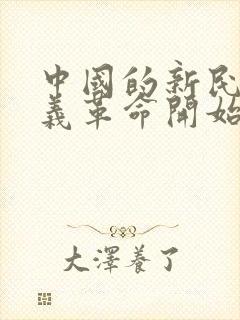 中國的新民
義革命開始
大澤養了